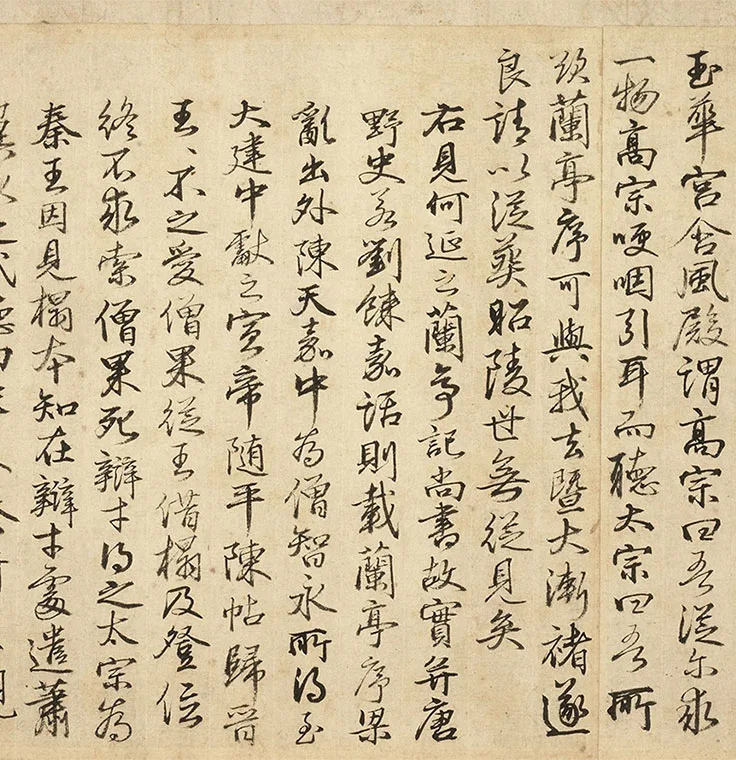 玉華宮含風殿謂高宗曰吾從尓求
一物高宗哽咽引耳而聽太宗曰吾所
欲蘭亭序可與我去暨大漸褚遂
良請以從葬昭陵世無從見矣
右見何延之蘭亭記尚書故實并唐
野史若劉餗嘉話則載蘭亭序梁
亂出外陳天嘉中為僧智永所得至
大建中獻之宣帝随平陳帖歸晉
王、不之愛僧果從王借榻及登位
終不求索僧果死辯才得之太宗為
秦王因見榻本知在辯才處遣蕭